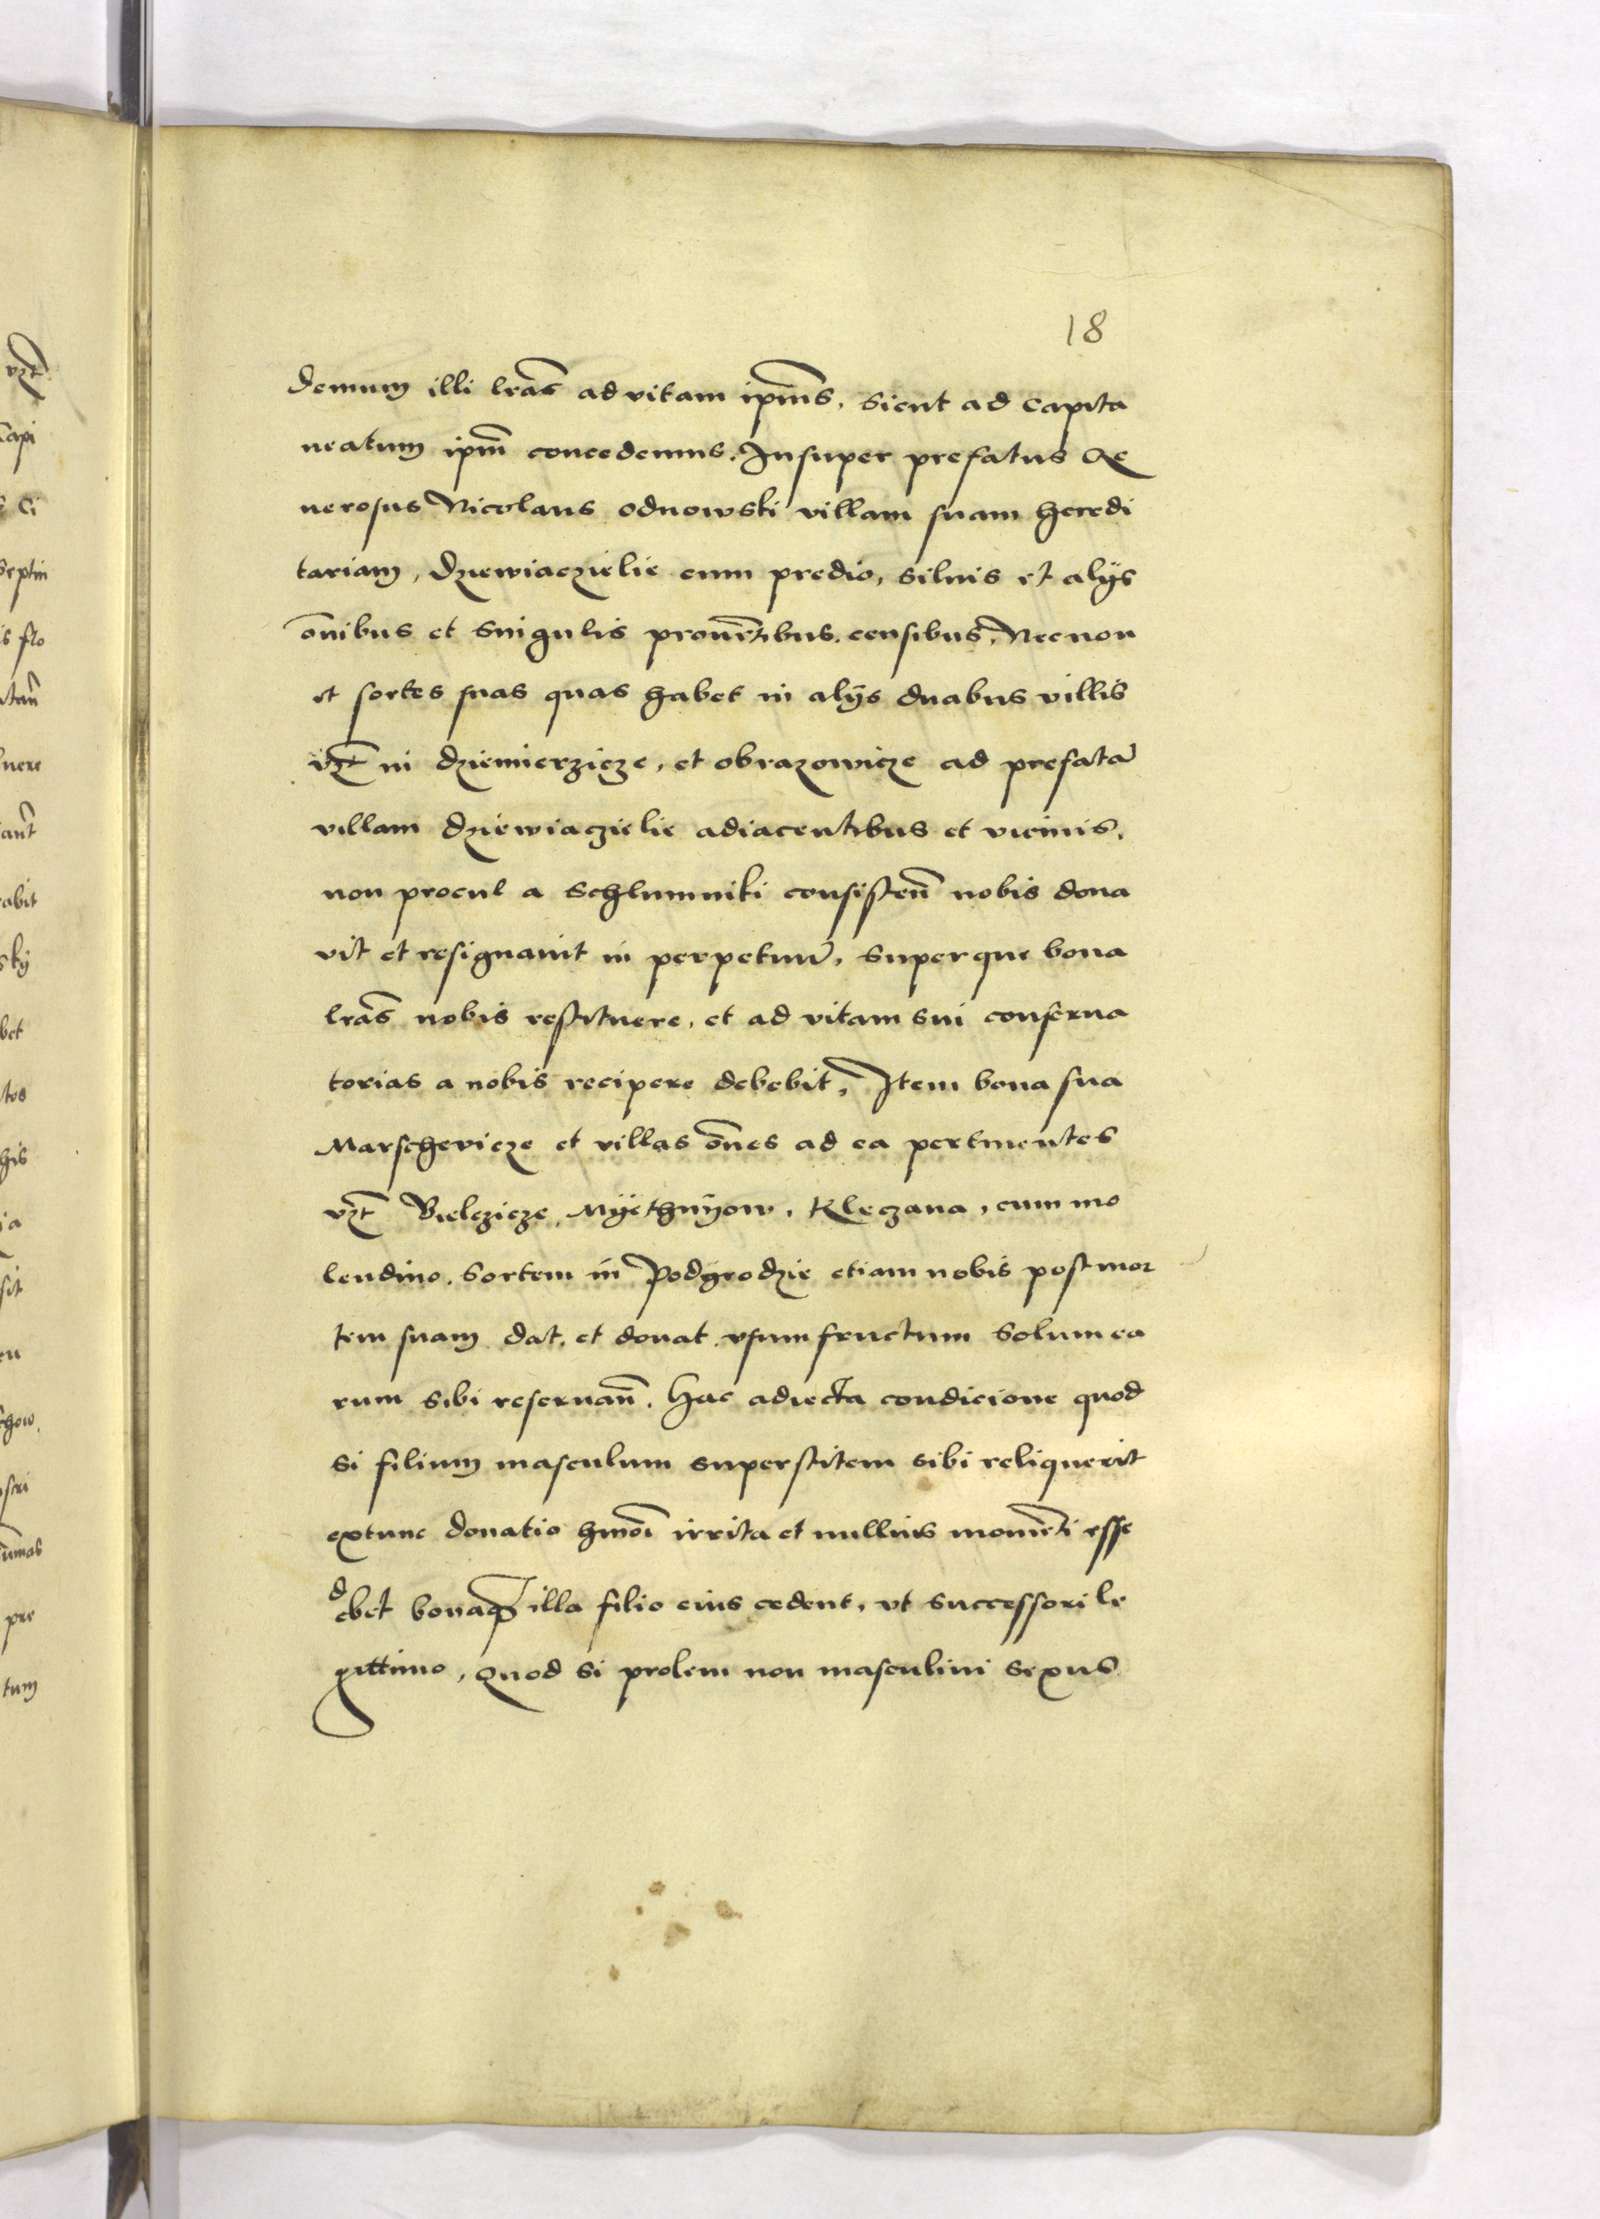 18
demum illi lrãs ad vitam ipms̃, sicut ad Capita
neatum ipm̃ concedemus. Insuper prefatus Ge
nerosus Nicolaus odnowski villam suam heredi
tariam, dzewiaczielie cum predio, siluis et alijs
om̃ibus et singulis prouẽtibus. censibus, Necnon
et sortes suas quas habet in alijs duabus villis
vzt̃ in dziemierzicze, et obrazowicze ad prefatã
villam dziewiaczielie adiacentibus et vicinis,
non procul a Schlumniki consisteñ nobis dona
vit et resignauit in perpetuũ, superque bona
lrãs nobis restituere, et ad vitam sui conserua
torias a nobis recipere debebit, Item bona sua
Marschevicze et villas om̃es ad ea pertinentes
vzt̃ Bielczicze, Myethnyow, Kleczana, cum mo
lendino. Sortem in Podgrodzie etiam nobis post mor
tem suam dat, et donat, vsumfructum solum ea
rum sibi reseruañ. Hac adiecta condicione quod
si filium masculum superstitem sibi reliquerit
extunc donatio hmõi irrita et nullius momẽti esse
debet bonaq̃ illa filio eius cedent, vt successori le
gittimo, Quod si prolem non masculini sexus
vzt̃
Capi
Ci
Septin
is flo
nere
abit
sky
bet
tos
his
ia
sit
chow.
stri
pre
tum